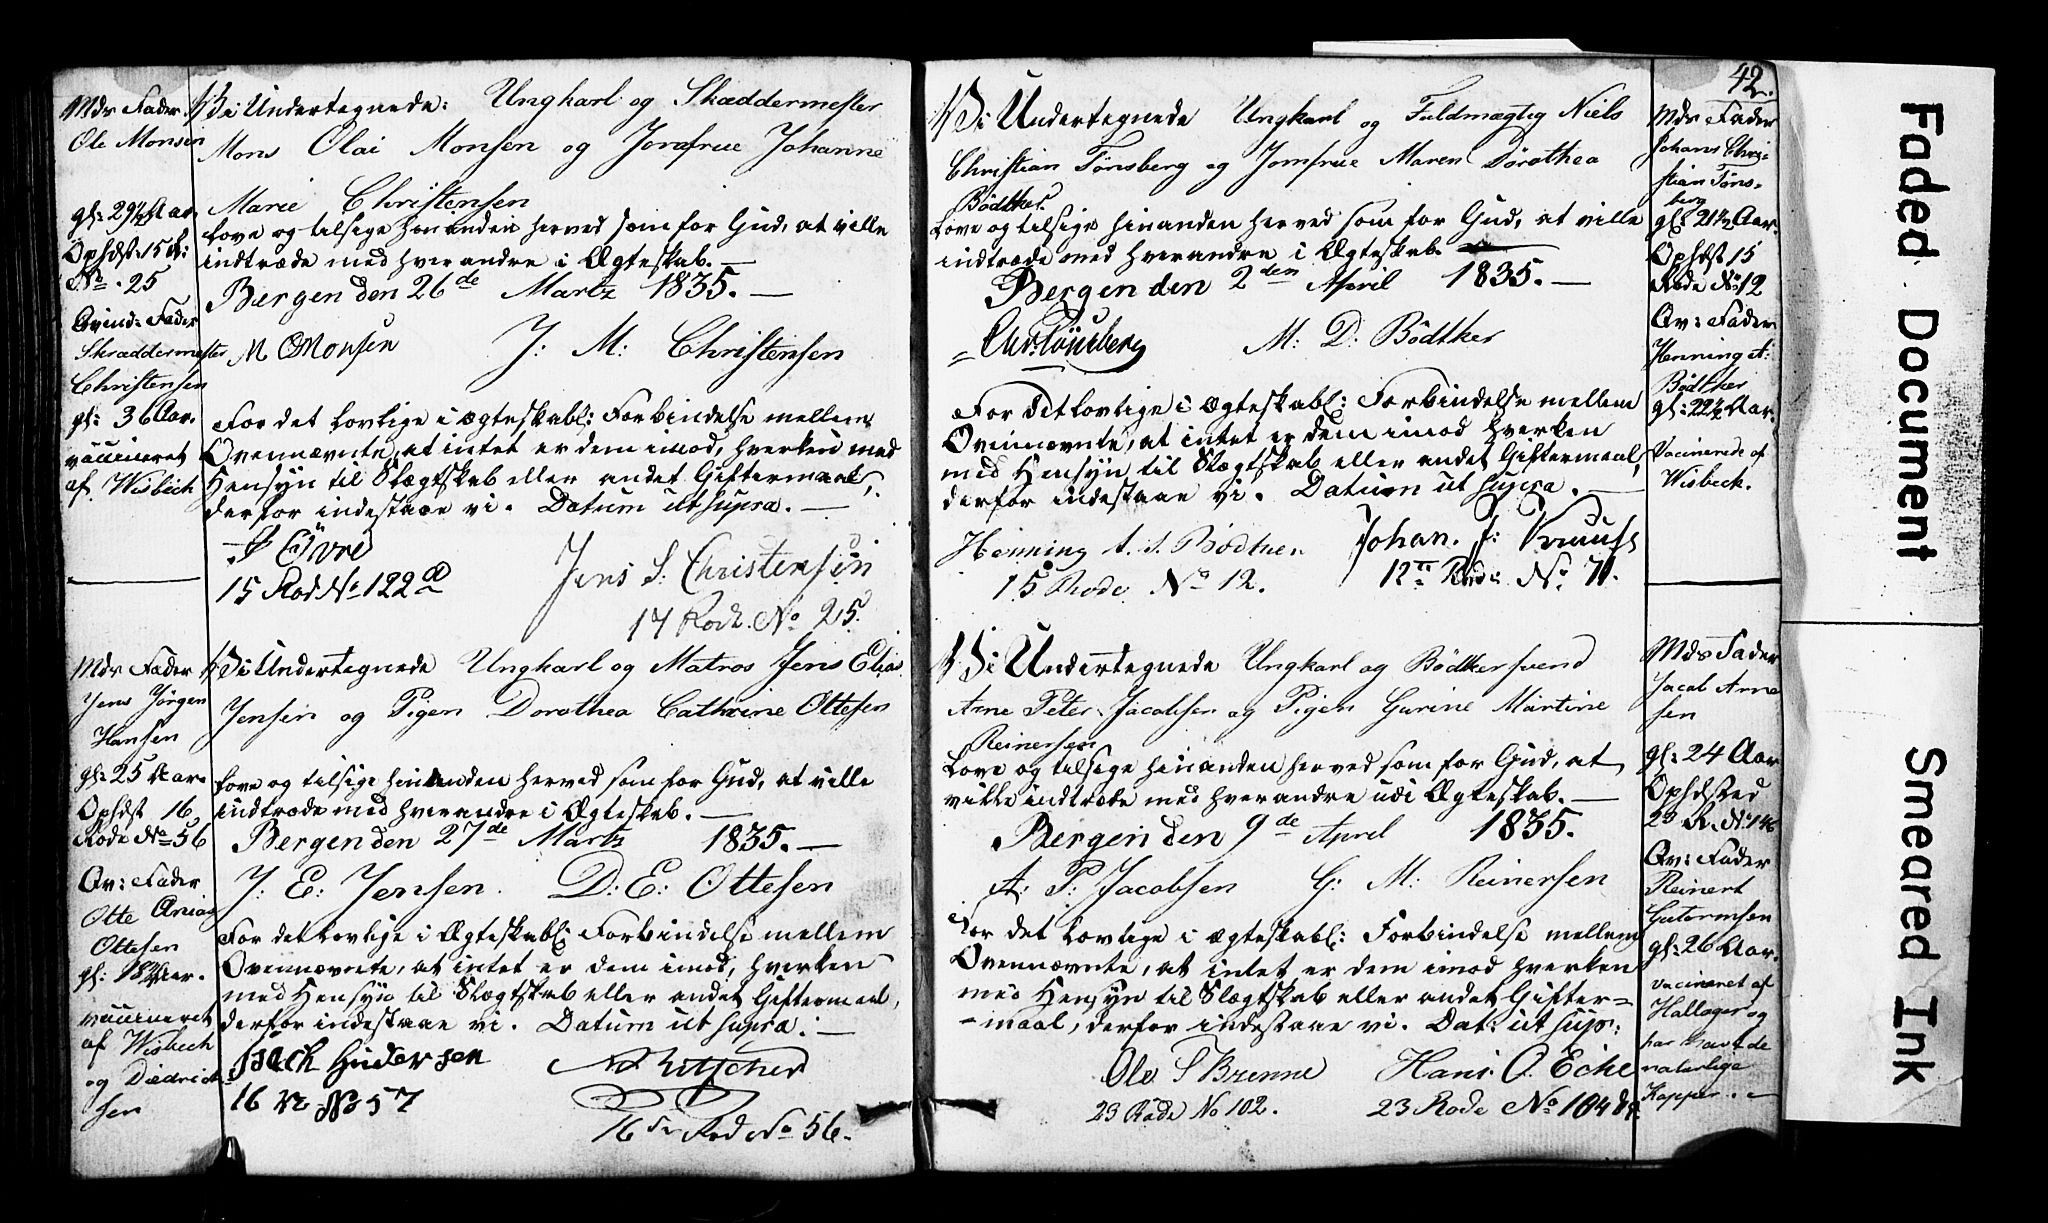 Mds Fader
Ole Monsen
gl: 29½ Aar.
Ophdst: 15 R:
No. 25
Qvind: Fader
Skræddermester
Christensen
gl: 36 Aar.
vaccineret
af Wisbech
Vi Undertegnede: Ungkarl og Skræddermester
Mons Olai Monsen og Jomfrue Johanne
Marie Christensen
love og tilsige hinanden herved som for Gud, at ville
indtræde med hverandre i Ægteskab. —
Bergen den 26de Martz 1835. —
M O Monsen J: M: Christensen
For det lovlige i ægteskabl: Forbindelse mellem
Ovennævnte, at intet er dem imod, hverken med
Hensyn til Slægtskab eller andet Giftermaal,
derfor indestaae vi. Datum ut supra. —
15 Rod No 122
Jens S. Christensen
17 Rode. No 25.
Mds Fader
Jens Jørgen
Hansen
gl: 25 Aar.
Ophdst 16
Rode No 56
Qv: Fader
Otte
Ottesen
gl: 18½ Aar.
vaccineret
af Wisbech
og Diedrich
sen
Vi Undertegnede Ungkarl og Matros Jens Elias
Jensen og Pigen Dorothea Cathrine Ottesen
love og tilsige hinanden herved som for Gud, at ville
indtræde med hverandre i Ægteskab. —
Bergen den 27de Martz 1835. —
J: E: Jensen. D: C: Ottesen
For det lovlige i Ægteskabl: Forbindelse mellem
Ovennævnte, at intet er dem imod, hverken
med Hensyn til Slægtskab eller andet Giftermaal,
derfor indestaae vi. Datum ut supra. —
16 R No 57
16de Rode No 56.
42.
Vi Undertegnede Ungkarl og Fuldmægtig Niels
Christian Tønsberg og Jomfrue Maren Dorothea
Bødtker
love og tilsige hinanden herved som for Gud, at ville
indtræde med hverandre i Ægteskab.
Bergen den 2den April 1835. —
Chr: Tönsberg M: D: Bödtker
For det lovlige i Ægteskabl: Forbindelse mellem
Ovennævnte, at intet er dem imod hverken
med Hensyn til Slægtskab eller andet Giftermaal,
derfor indestaae vi. Datum ut supra. —
Henning A. S. Bödtker Johan. J: Krauss
15 Rode No 12. 12te Rode No 71.
Mds Fader
Johans Chri-
stian Tøns-
berg
gl: 21½ Aar.
Ophdst 15
Rode No 12
Qv: Fader
Henning A:
Bødtker
gl: 22½ Aar.
Vacinerede af
Wisbech.
Vi Undertegnede Ungkarl og Bødtkersvend
Arne Peter Jacobsen og Pigen Gurine Martine
Reinersen
love og tilsige hinanden herved som for Gud, at
ville indtræde med hverandre udi Ægteskab. —
Bergen den 9de April 1835.
A: P: Jacobsen G: M: Reinersen
For det lovlige i ægteskabl: Forbindelse mellem
Ovennævnte, at intet er dem imod hverken
med Hensyn til Slægtskab eller andet Gifter=
=maal, derfor indestaae vi. Dat: ut sup:
Ole S Brenne Hans O. Eche
23 Rode No 102. 23 Rode No 104
Mds Fader
Jacob Arne
sen
gl: 24 Aar
Ophdsted
23 R. No 146
Qv: Fader
Reinert
Gutormsen
gl: 26 Aar.
vacineret af
Hallager og
har havt de
naturlige
Kopper. —
Faded Document
Smeared Ink